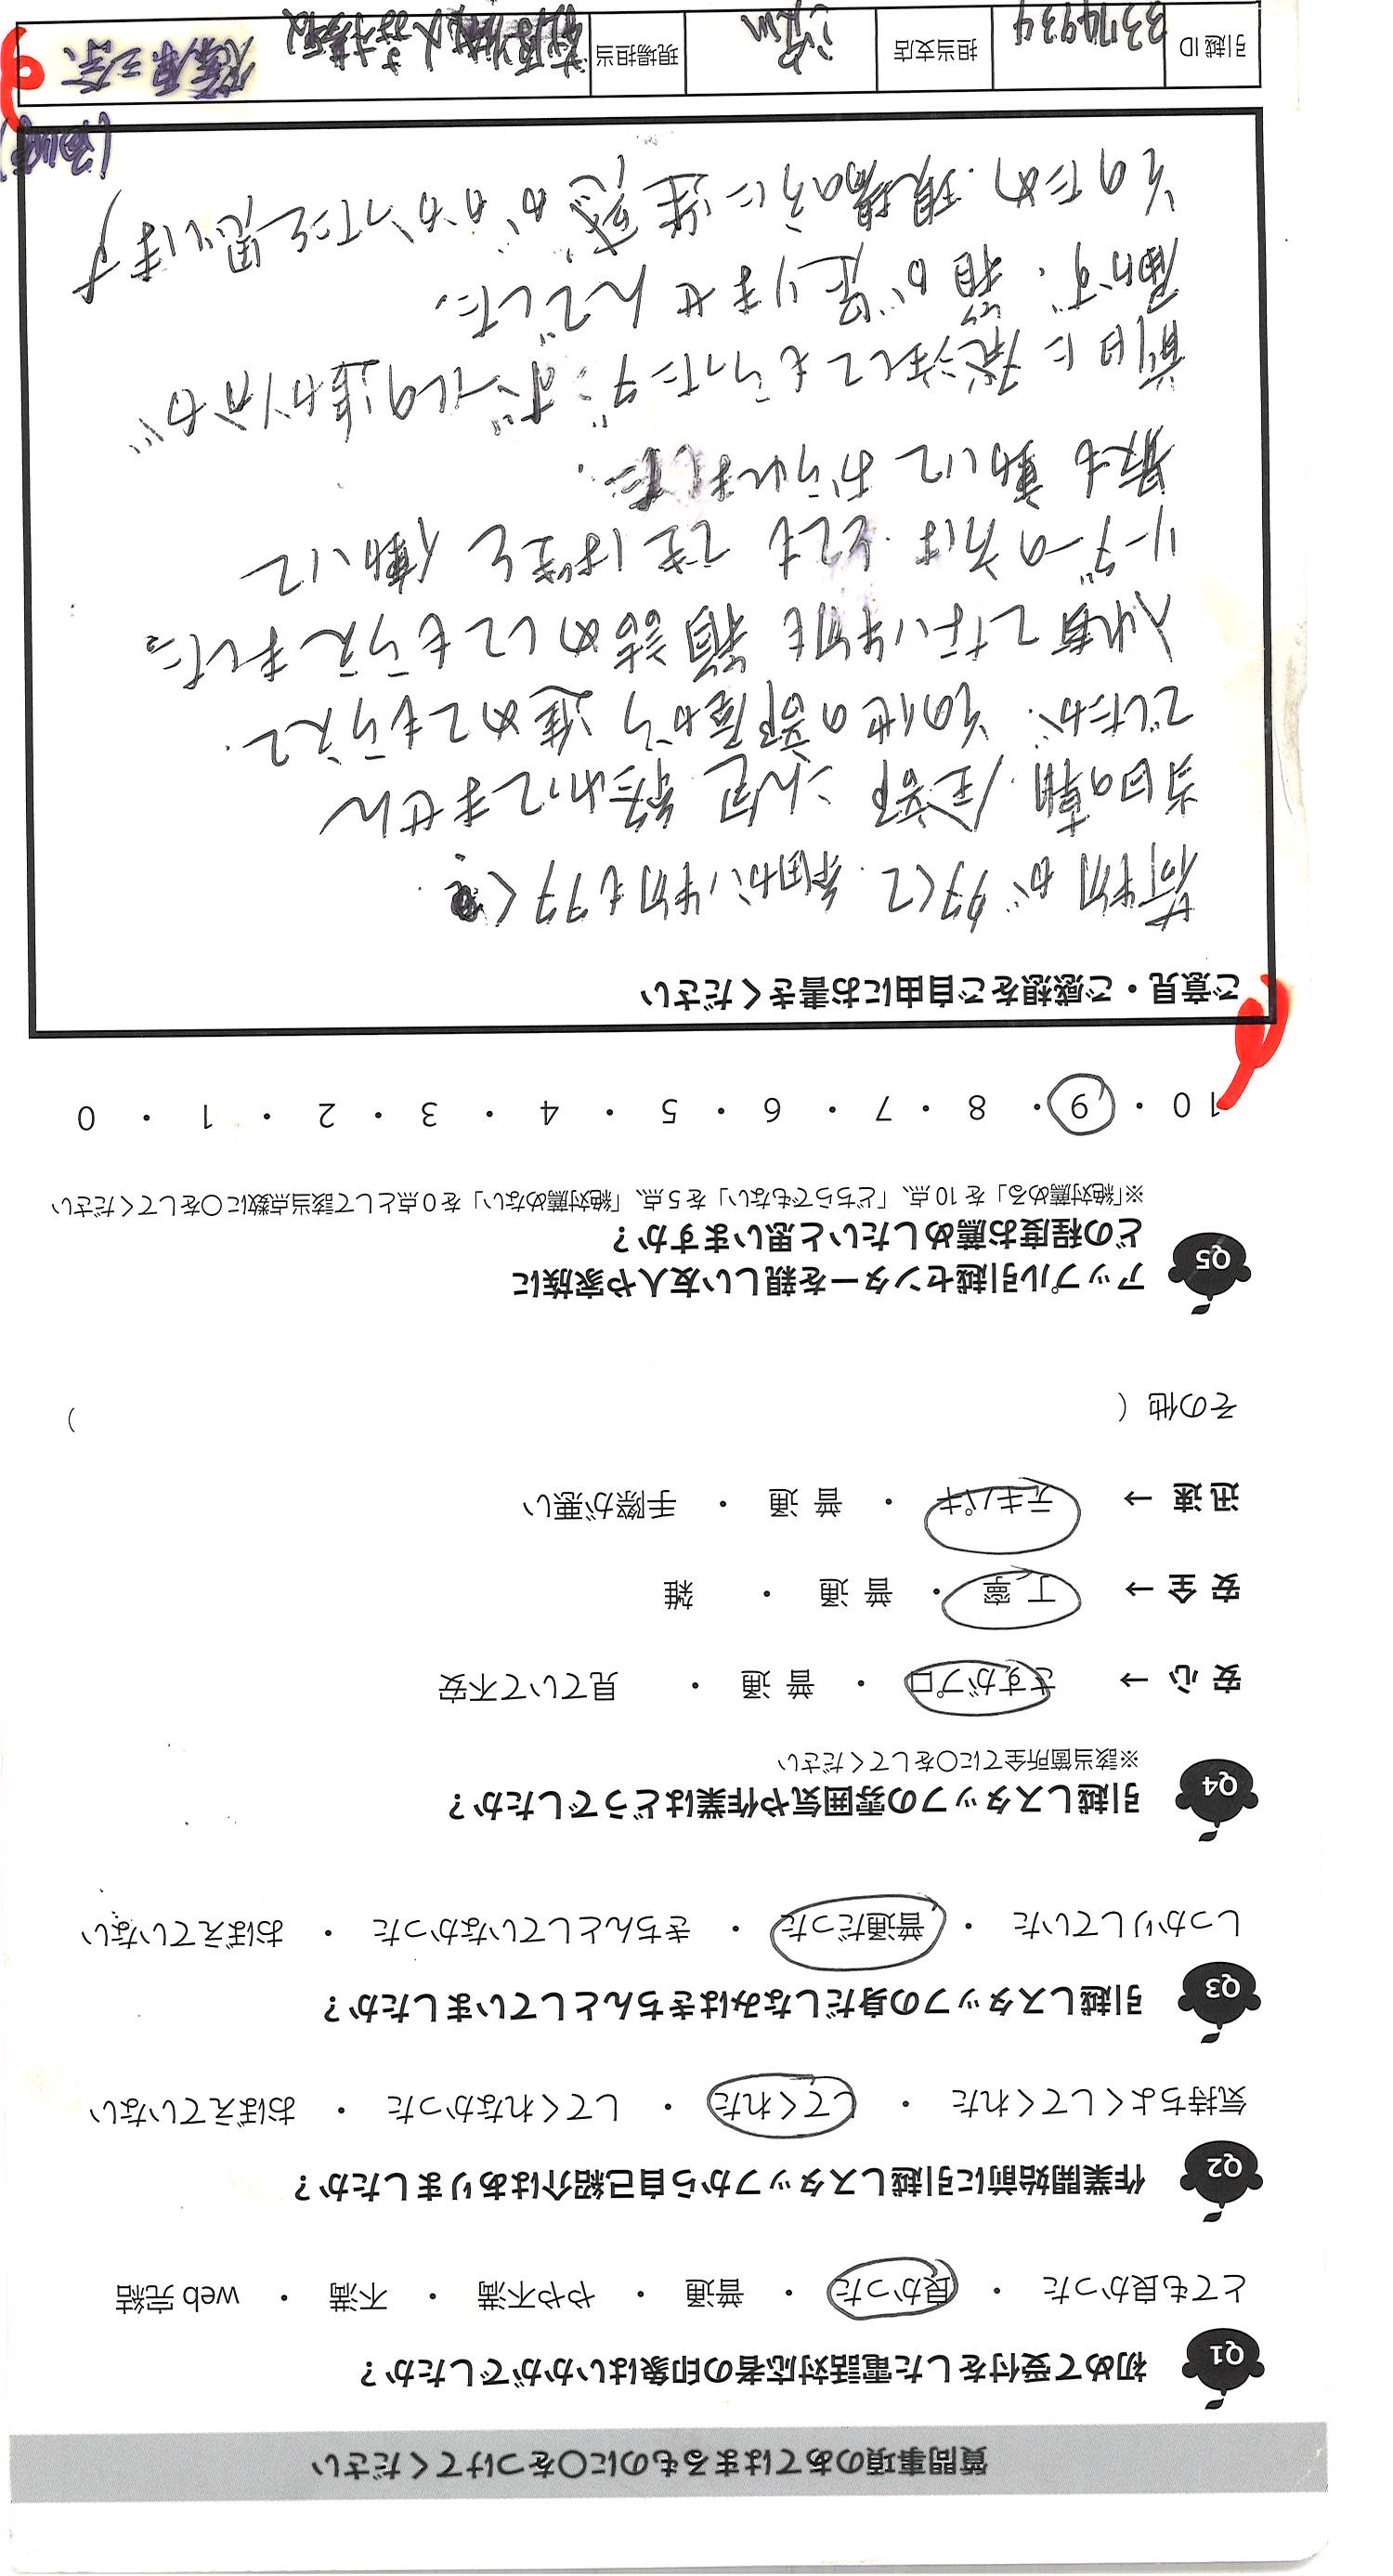 質問事項のあてはまるものに〇をつけてください
Q1 初めて受付をした電話対応者の印象はいかがでしたか？
とても良かった ・ 良かった ・ 普通 ・ やや不満 ・ 不満 ・ web完結
Q2 作業開始前に引越しスタッフから自己紹介はありましたか？
気持ちよくしてくれた ・ してくれた ・ してくれなかった ・ おぼえていない
Q3 引越しスタッフの身だしなみはきちんとしていましたか？
しっかりしていた ・ 普通だった ・ きちんとしていなかった ・ おぼえていない
Q4 引越しスタッフの雰囲気や作業はどうでしたか？
※該当箇所全てに〇をしてください
安心 → さすがプロ ・ 普通 ・ 見ていて不安
安全 → 丁寧 ・ 普通 ・ 雑
迅速 → テキパキ ・ 普通 ・ 手際が悪い
その他（ ）
Q5 アップル引越センターを親しい友人や家族に
どの程度お薦めしたいと思いますか？
※「絶対薦める」を10点、「どちらでもない」を5点、「絶対薦めない」を0点として該当点数に〇をしてください
10 ・ 9 ・ 8 ・ 7 ・ 6 ・ 5 ・ 4 ・ 3 ・ 2 ・ 1 ・ 0
ご意見・ご感想をご自由にお書きください
荷物が多くて、細かい物も多く
当日の朝、全部こん包終わってません
でしたが、その他の部屋から進めてもらえて、
入れ有てない物も箱詰めしてもらえました。
リーダーの方はとてもてきぱきと働いて
最も動いておられました。
前日に発注してもらったダンボールの追加分が
届かず、箱が足りませんでした。
そのため、現場の方に迷惑がかかったと思います
引越ID 3374934 担当支店 現場担当